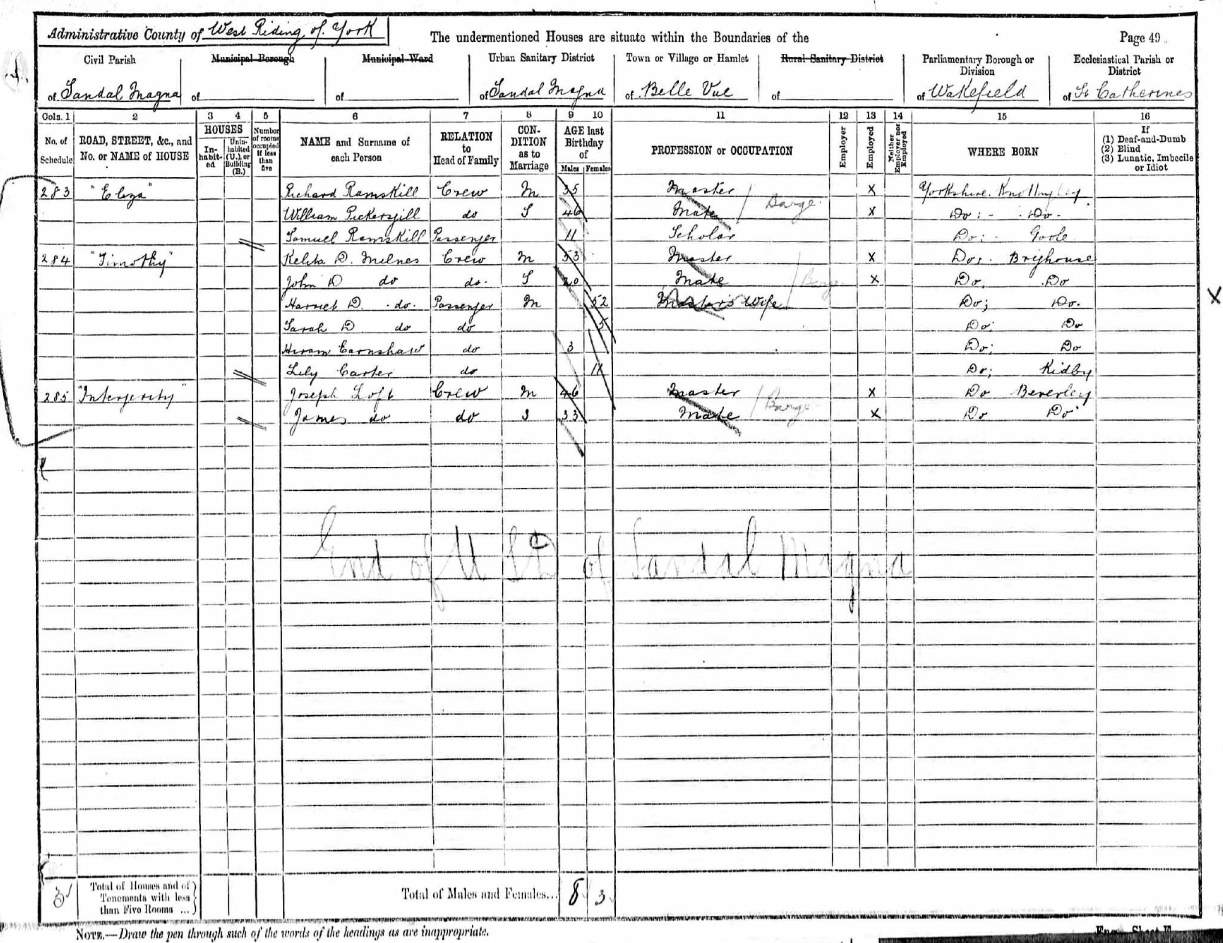 Administrative County of West Riding of York
The undermentioned Houses are situate within the Boundaries of the
Page 49
Civil Parish Municipal Borough Municipal Ward Urban Sanitary District Town or Village or Hamlet Rural Sanitary District Parliamentary Borough or Division Ecclesiastical Parish or District
of Sandal Magna of of of Sandal Magna of Belle Vue of of Wakefield of St Catherines
Cols. 1 2 3 4 5 6 7 8 9 10 11 12 13 14 15 16
No. of Schedule ROAD, STREET, &c., and No. or NAME of HOUSE HOUSES Inhabited Uninhabited (U.), or Building (B.) Number of rooms occupied if less than five NAME and Surname of each Person RELATION to Head of Family CONDITION as to Marriage AGE last Birthday of Males Females PROFESSION or OCCUPATION Employer Employed Neither Employer nor Employed WHERE BORN If (1) Deaf-and-Dumb (2) Blind (3) Lunatic, Imbecile or Idiot
283 "Eliza" Richard Ramskill Crew M 35 Master X Yorkshire. Knottingley
William Pickersgill do S 46 Mate Barge X Do: - Do -
Samuel Ramskill Passenger 11 Scholar Do: - Goole
284 "Timothy" Kelita D. Milnes Crew M 53 Master X Do: Brighouse
John D do do. S 20 Mate Barge X Do. Do
Harriet D do. Passenger M 52 Master's Wife Do; Do.
Sarah D do do 5 Do: Do
Hiram Earnshaw do 3 Do; Do
Lily Carter do 11 Do; Kidby
285 "Intergerity" Joseph Loft Crew M 46 Master X Do Beverley
James do do S 33 Mate Barge X Do Do
End of U S D of Sandal Magna
3 Total of Houses and of Tenements with less than Five Rooms ... Total of Males and Females... 8 3
NOTE.—Draw the pen through such of the words of the headings as are inappropriate.